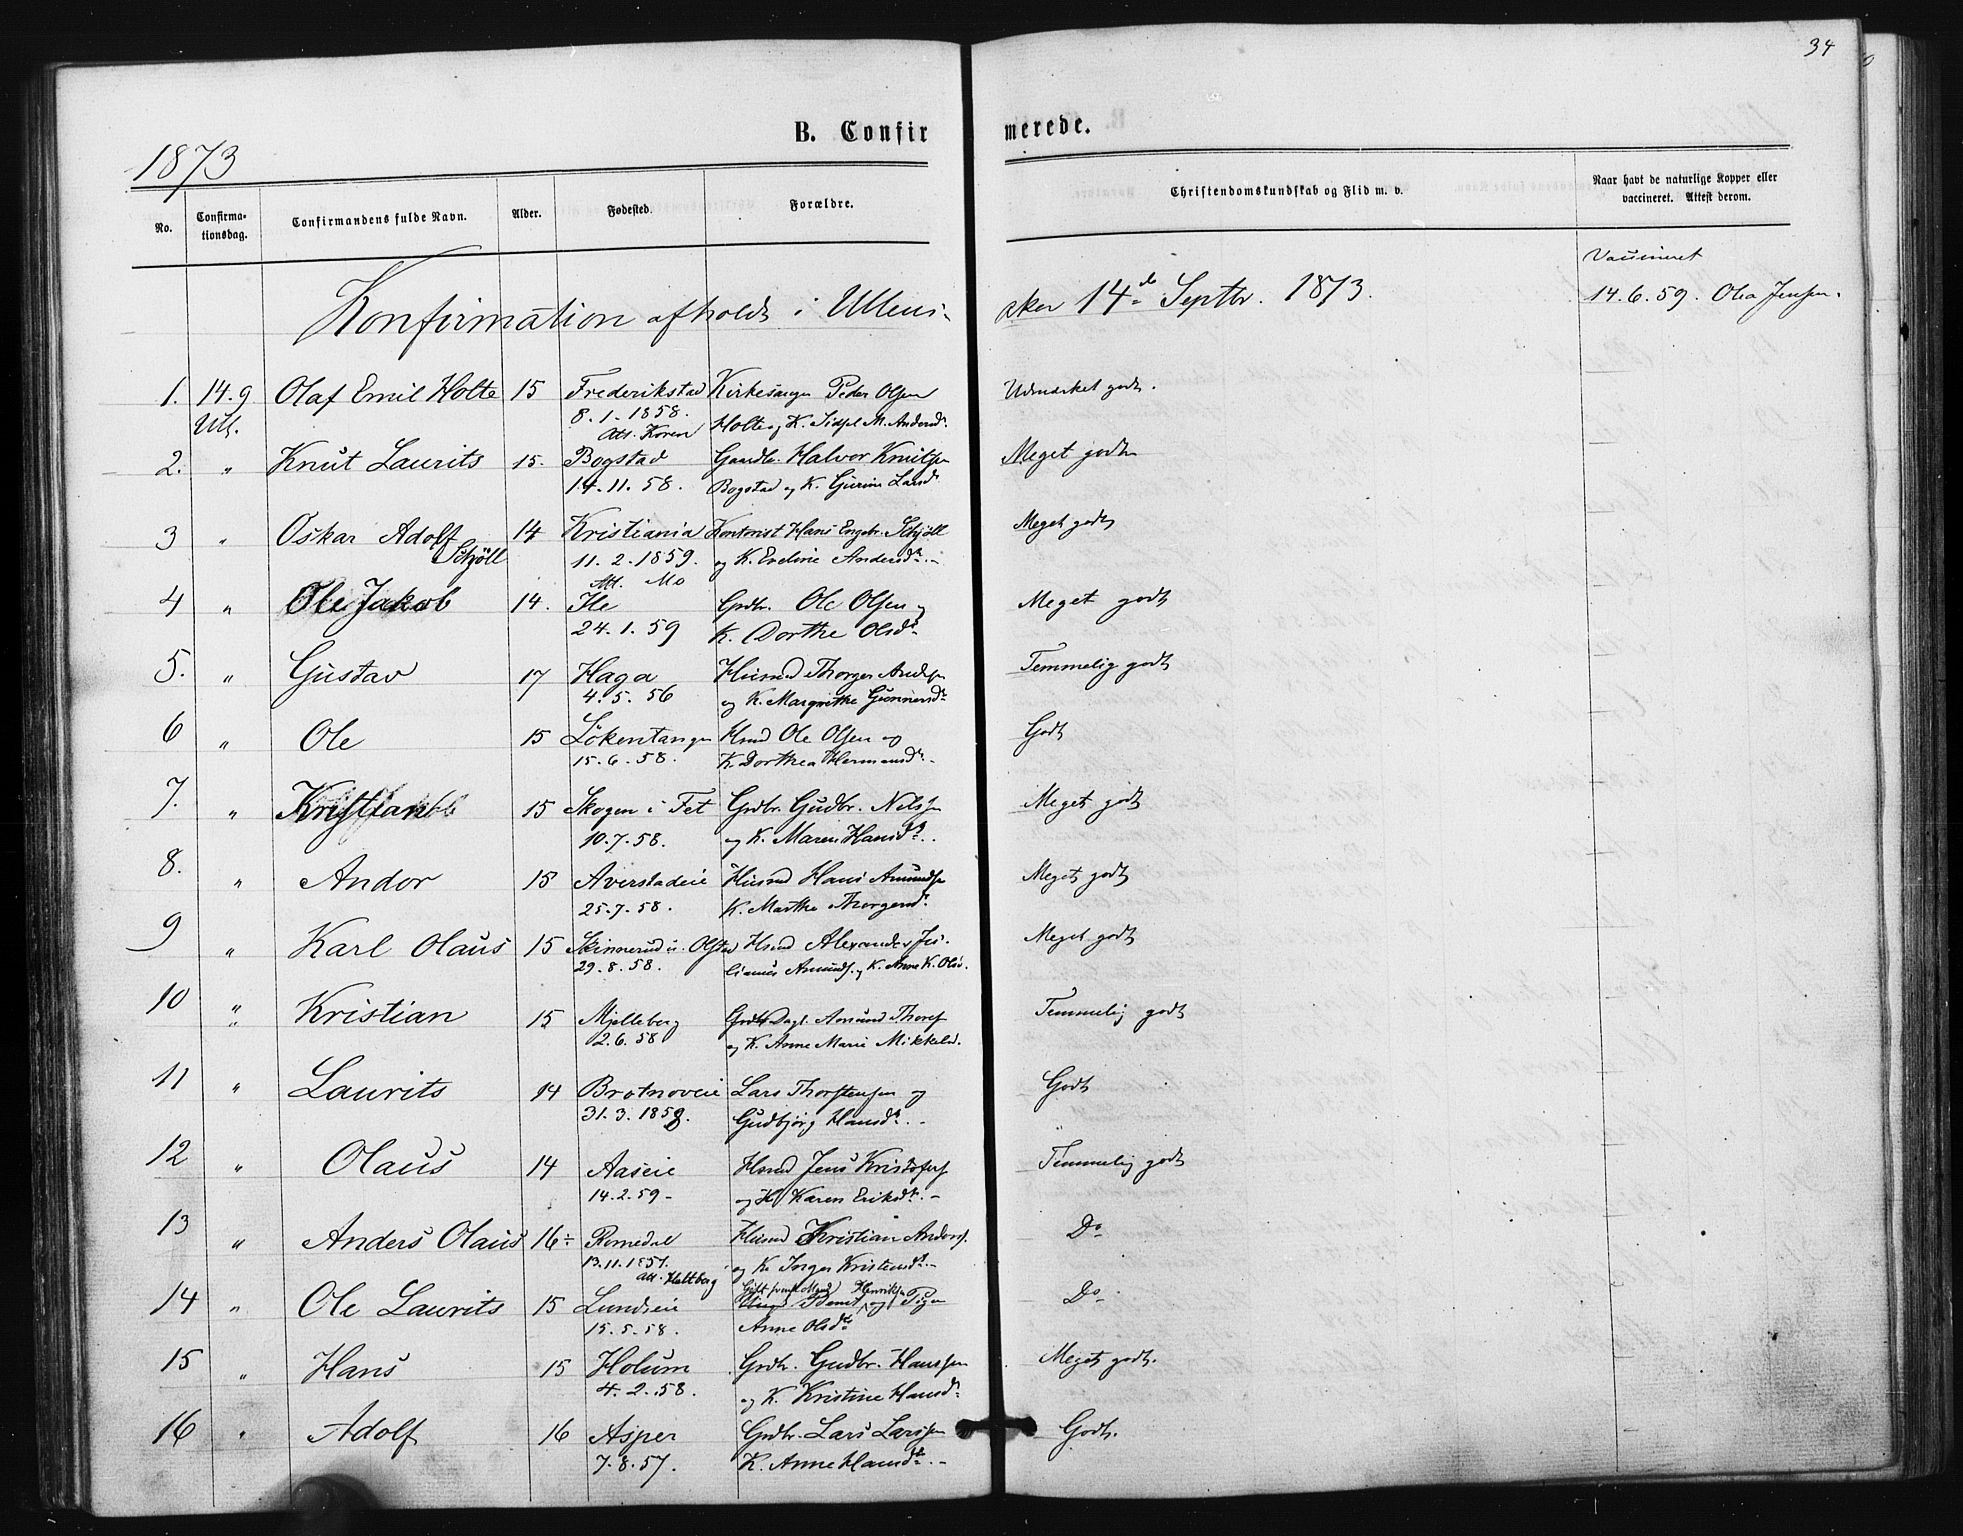 34
B. Confirmerede.
1873
No.
Confirmationsdag.
Confirmandens fulde Navn.
Alder.
Fødested.
Forældre.
Christendomskundskab og Flid m. v.
Naar havt de naturlige Kopper eller vaccineret. Attest derom.
Konfirmation afholdt i Ullensaker 14de Septbr. 1873.
Vaccineret
14.6.59. Olea Jensen.
1. 14.9 Olaf Emil Holte 15 Frederikstad Kirkesanger Peder Olsen Udmærket godt.
Ull. 8.1.1858. Holte og K. Sidsel M. Andersdr
Att. Koren
2. " Knut Laurits 15. Bogstad Gaardbr. Halvor Knutsen Meget godt
14.11.58. Bogstad og K. Gurine Larsdr
3 " Oskar Adolf 14 Kristiania Kontorist Hans Engebr. Schjöll Meget godt
Schjöll 11.2.1859. og K. Eveline Andersdr.
Att. Mo
4 " Ole Jakob 14. Ile Grdbr. Ole Olsen og Meget godt
24.1.59 K. Dorthe Olsdr
5. " Gustav 17 Haga Husmd Thorger Andersen Temmelig godt
4.5.56 og K. Margrethe Gunnersdr
6 " Ole 15 Lökentangen Hsmd Ole Olsen og Godt
15.6.58. K. Dorthea Hermansdr.
7. " Kristian 15 Skogen i Fet Grdbr. Gudbr. Nilsen Meget godt
10.7.58. og K. Maren Hansdr.
8. " Andor 15 Averstadeie Husmd Hans Amundsen Meget godt
25.7.58. K. Marthe Thorgersdr
9 " Karl Olaus 15 Skinnerud u. Olstad Hsmd Alexander Ju- Meget godt
29.8.58. lianus Amunds. og K. Anne K. Olsd.
10 " Kristian 15 Mjelleberg Amund Thores. Temmelig godt
2.6.58 og K. Anne Marie Mikkelsd.
11 " Laurits 14 Brotnoveie Lars Thorstensen og Godt
31.3.1859. Gudbjörg Hansdr.
12 " Olaus 14 Aaseie Hsmd Jens Kristofers. Temmelig godt
14.2.59 og K. Karen Eriksdr.
13 " Anders Olaus 16÷ Romedal Husmd Kristian Anders. Do
13.11.1857. og K. Inger Kristensdr.
Att. Heltberg
14 " Ole Laurits 15 Lundseie Bernt Henriksen og Pigen Do
15.5.58. Anne Olsdr
15 " Hans 15 Holum Grdbr. Gudbr. Hanssen Meget godt.
4.2.58. og K. Kristine Hansdr
16 " Adolf 16 Asper Grdbr. Lars Larssen Godt.
7.8.57. K. Anne Hansdr.